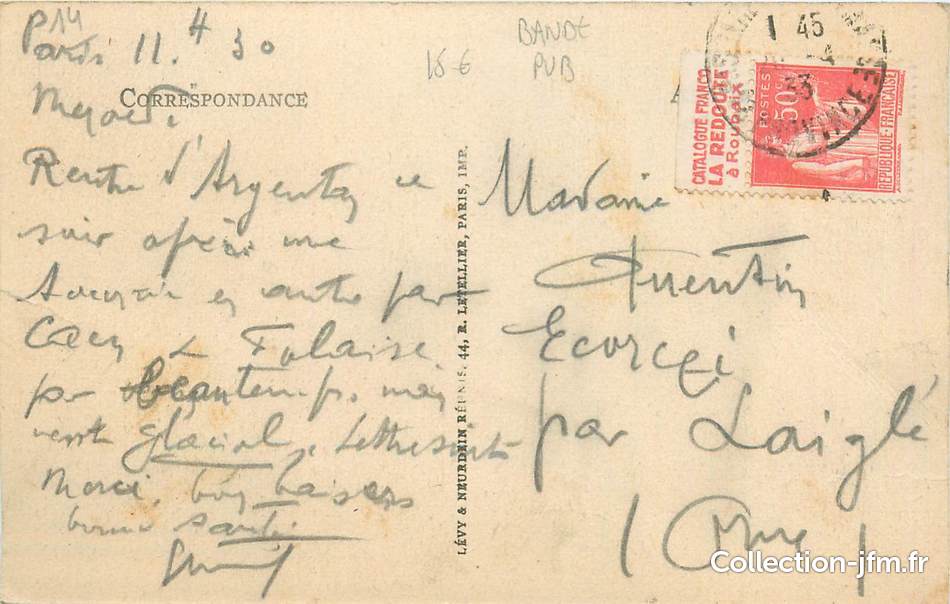 P14
Paris 11. 4 30
CORRESPONDANCE
15 €
BANDE
PUB
Rentré d'Argentan ce
soir après une
en auto par
Caen Falaise
par beau temps, mais
vent glacial, Lettre suit
Merci, bons baisers
bonne santé
1 45
CATALOGUE FRANCO
LA REDOUTE
à Roubaix
POSTES
50c
RÉPUBLIQUE-FRANÇAISE
Madame
Quentin
Ecorcei
par Laigle
(Orne)
LÉVY & NEURDEIN RÉUNIS, 44, R. LETELLIER, PARIS, IMP.
Collection-jfm.fr